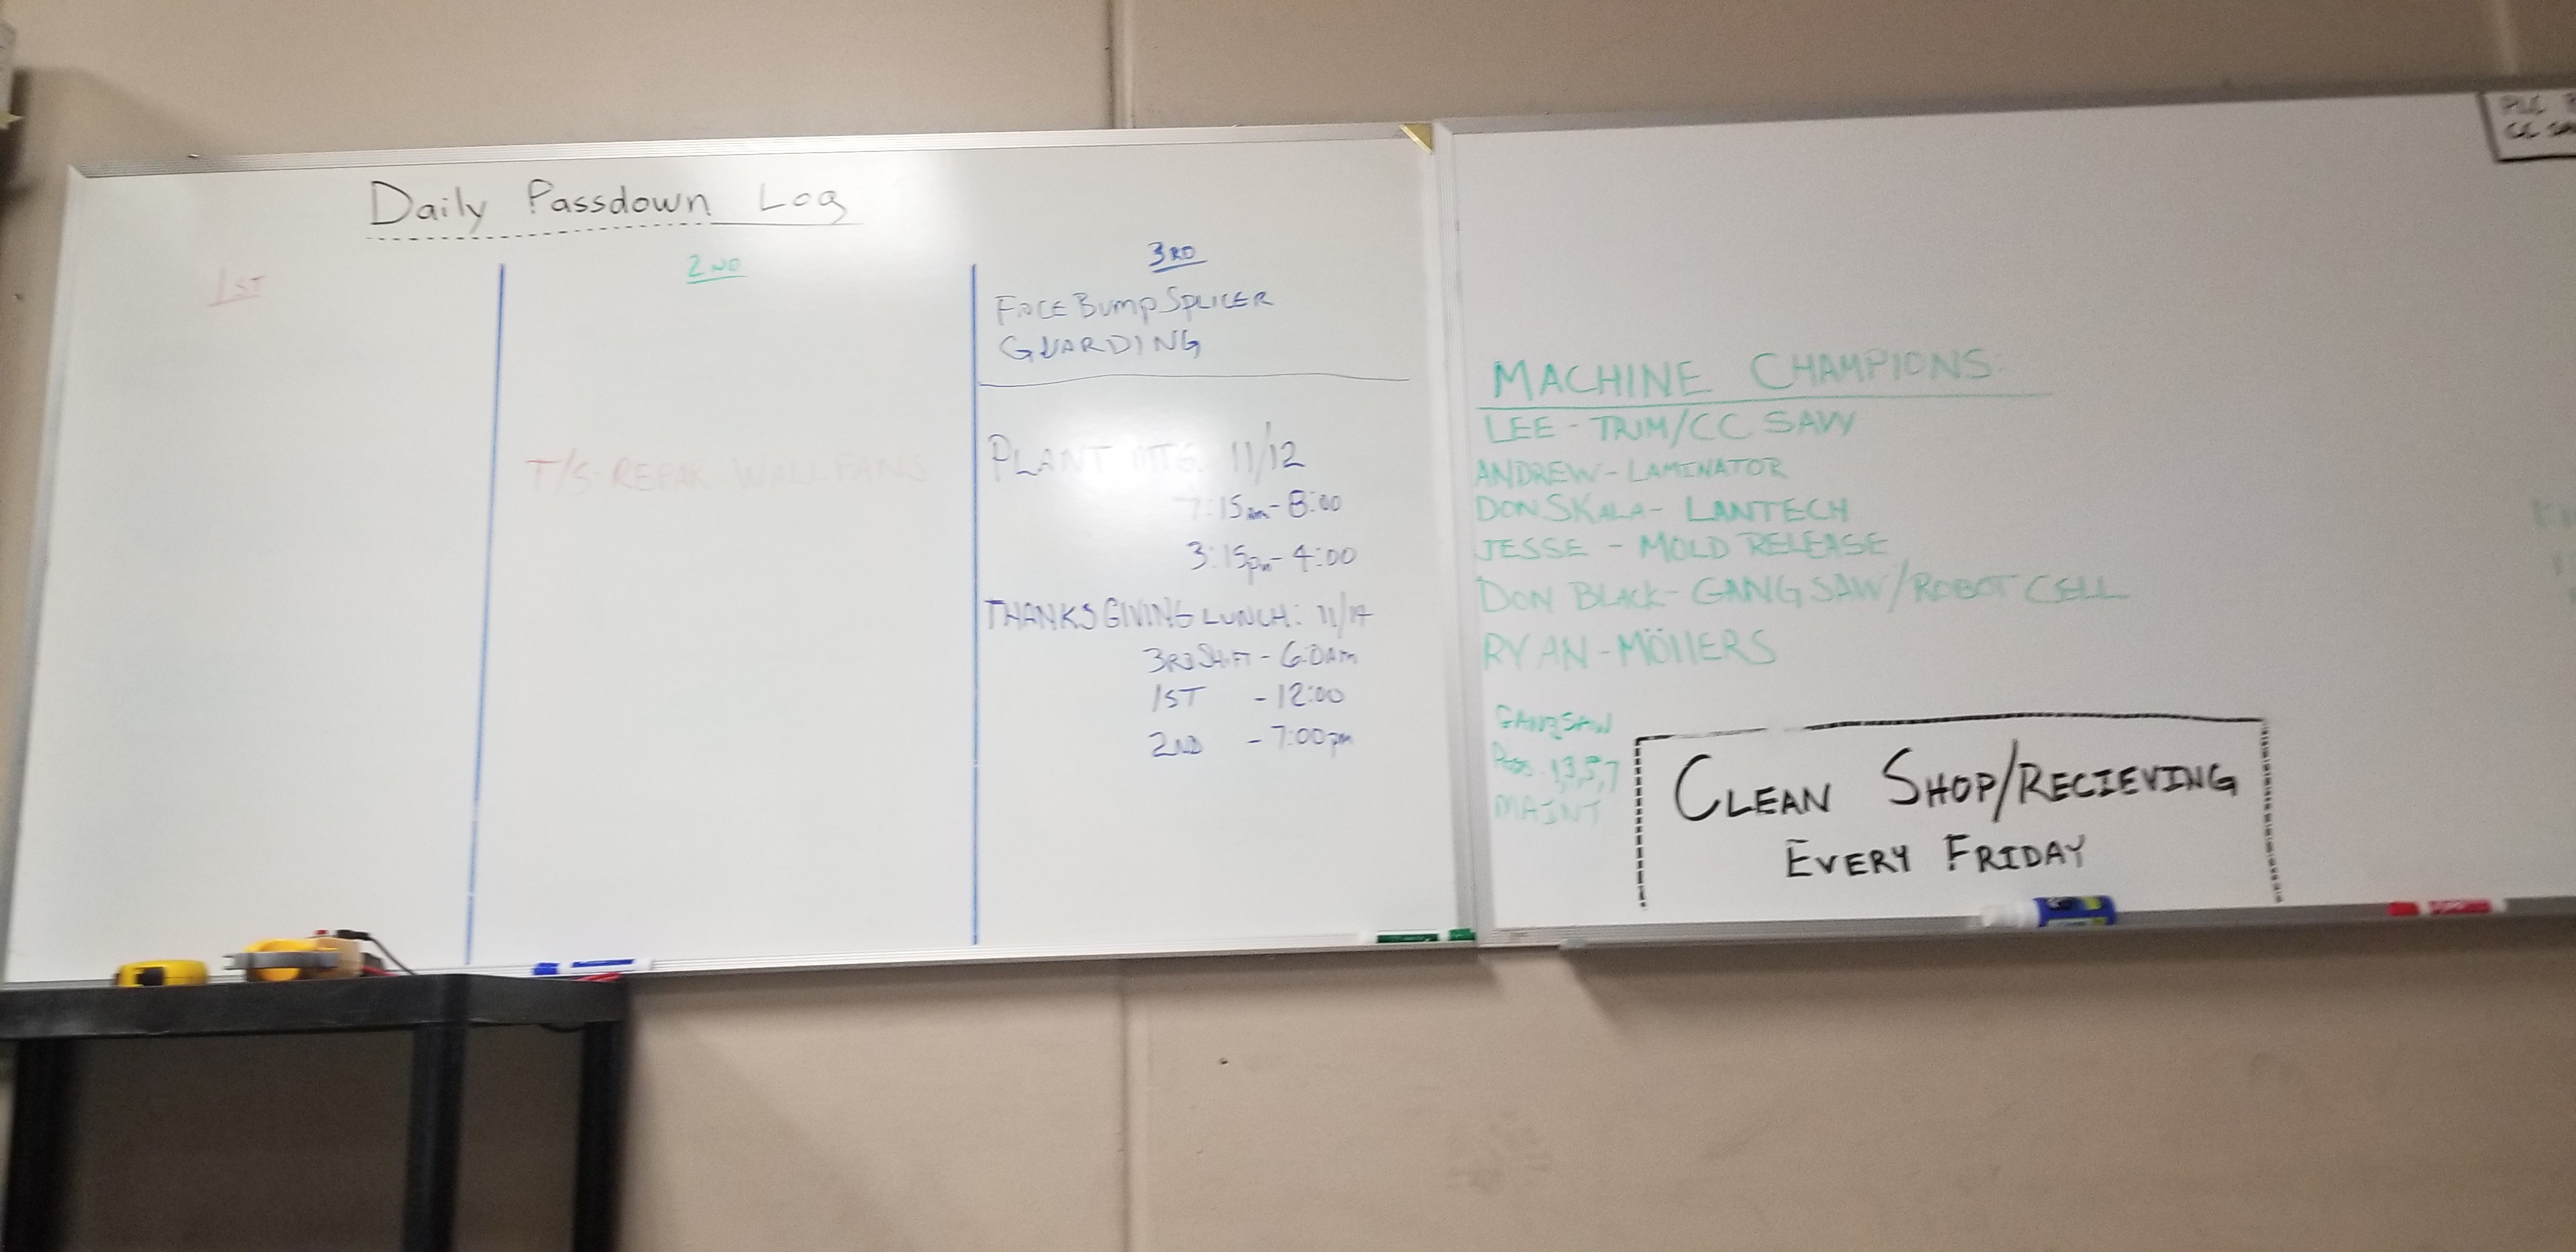 Daily Passdown Log
1ST
2ND
T/S-REPAR WALL FANS
3RD
FACE BUMP SPLICER
GUARDING
PLANT MTG. 11/12
7:15am-8:00
3:15pm-4:00
THANKSGIVING LUNCH: 11/14
3RD SHIFT -
1ST - 12:00
2ND - 7:00pm
MACHINE CHAMPIONS:
LEE - TRIM/CC SAW
ANDREW - LAMINATOR
DON SKALA - LANTECH
JESSE - MOLD RELEASE
DON BLACK - GANG SAW/ROBOT CELL
RYAN - MÖllERS
GANGSAW
13,5,7
MAINT
CLEAN SHOP/RECIEVING
EVERY FRIDAY
PLC
CC